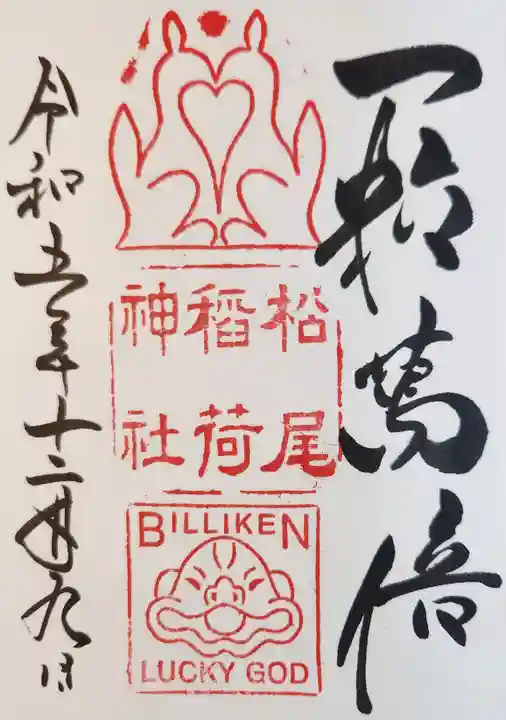 一粒萬倍
松尾
稲荷
神社
BILLIKEN
LUCKY GOD
令和五年十二月九日